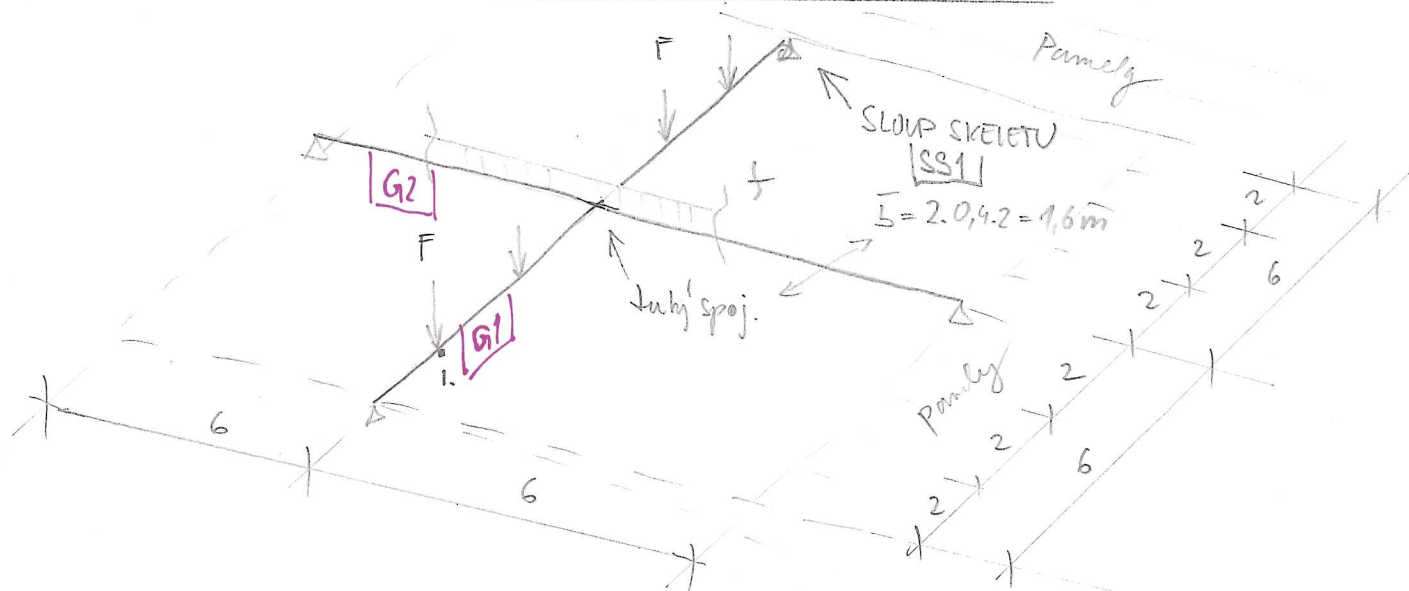 Panely
F
SLOUP SKELETU
SS1
b = 2.0,4.2 = 1,6m
G2
f
F
tuhý spoj.
G1
1.
panely
6
6
2
2
2
2
2
2
6
6